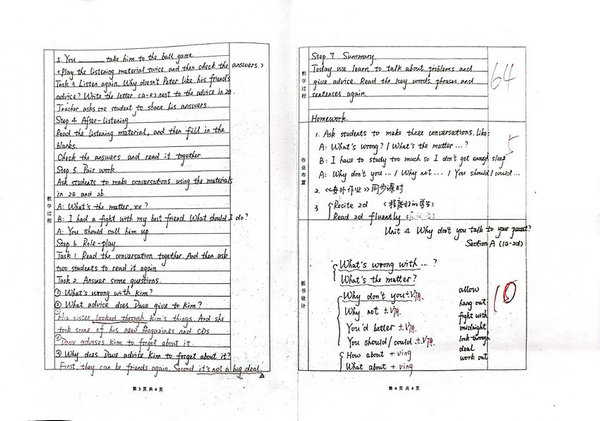 3. You ____ take him to the ball game.
<Play the listening material twice and then check the answers.>
Task 4 Listen again. Why doesn't Peter like his friend's
advice? Write the letter (a-e) next to the advice in 2a.
Teacher asks one student to share his answers.
Step 4 After-listening
Read the listening material, and then fill in the
blanks.
Check the answers and read it together.
Step 5. Pair work
Ask students to make conversations using the materials
in 2a and 2b
A: What's the matter, xx?
B: I had a fight with my best friend. What should I do?
A: You should call him up
Step 6 Role-play.
Task 1 Read the conversation together. And then ask
two students to read it again
Task 2 Answer some questions.
① What's wrong with Kim?
② What advice does Dave give to Kim?
① His sister looked through Kim's things. And she
took some of his new magazines and CDs
② Dave advises Kim to forget about it.
③ Why does Dave advice Kim to forget about it?
First, they can be friends again. Second it's not a big deal.
教学过程
第 3 页 共 4 页
Step 7 Summary
Today we learn to talk about problems and
give advice. Read the key words, phrases and
sentences again.
64
教学过程
Homework.
1. Ask students to make three conversations. like:
A: What's wrong? / What's the matter...?
B: I have to study too much so I don't get enough sleep
A: Why don't you... / Why not... / You should / could...
2. 同步课时
3. Recite 2d
Read 2d fluently
作业布置
Unit 4 Why don't you talk to your parents?
Section A (1a-2d)
What's wrong with...?
What's the matter?
Why don't you + V原.
Why not + V原.
You'd better + V原.
You should / could + V原.
How about + ving
What about + ving
allow
hang out
fight with
midnight
look through
deal
work out
10
板书设计
第 4 页 共 4 页